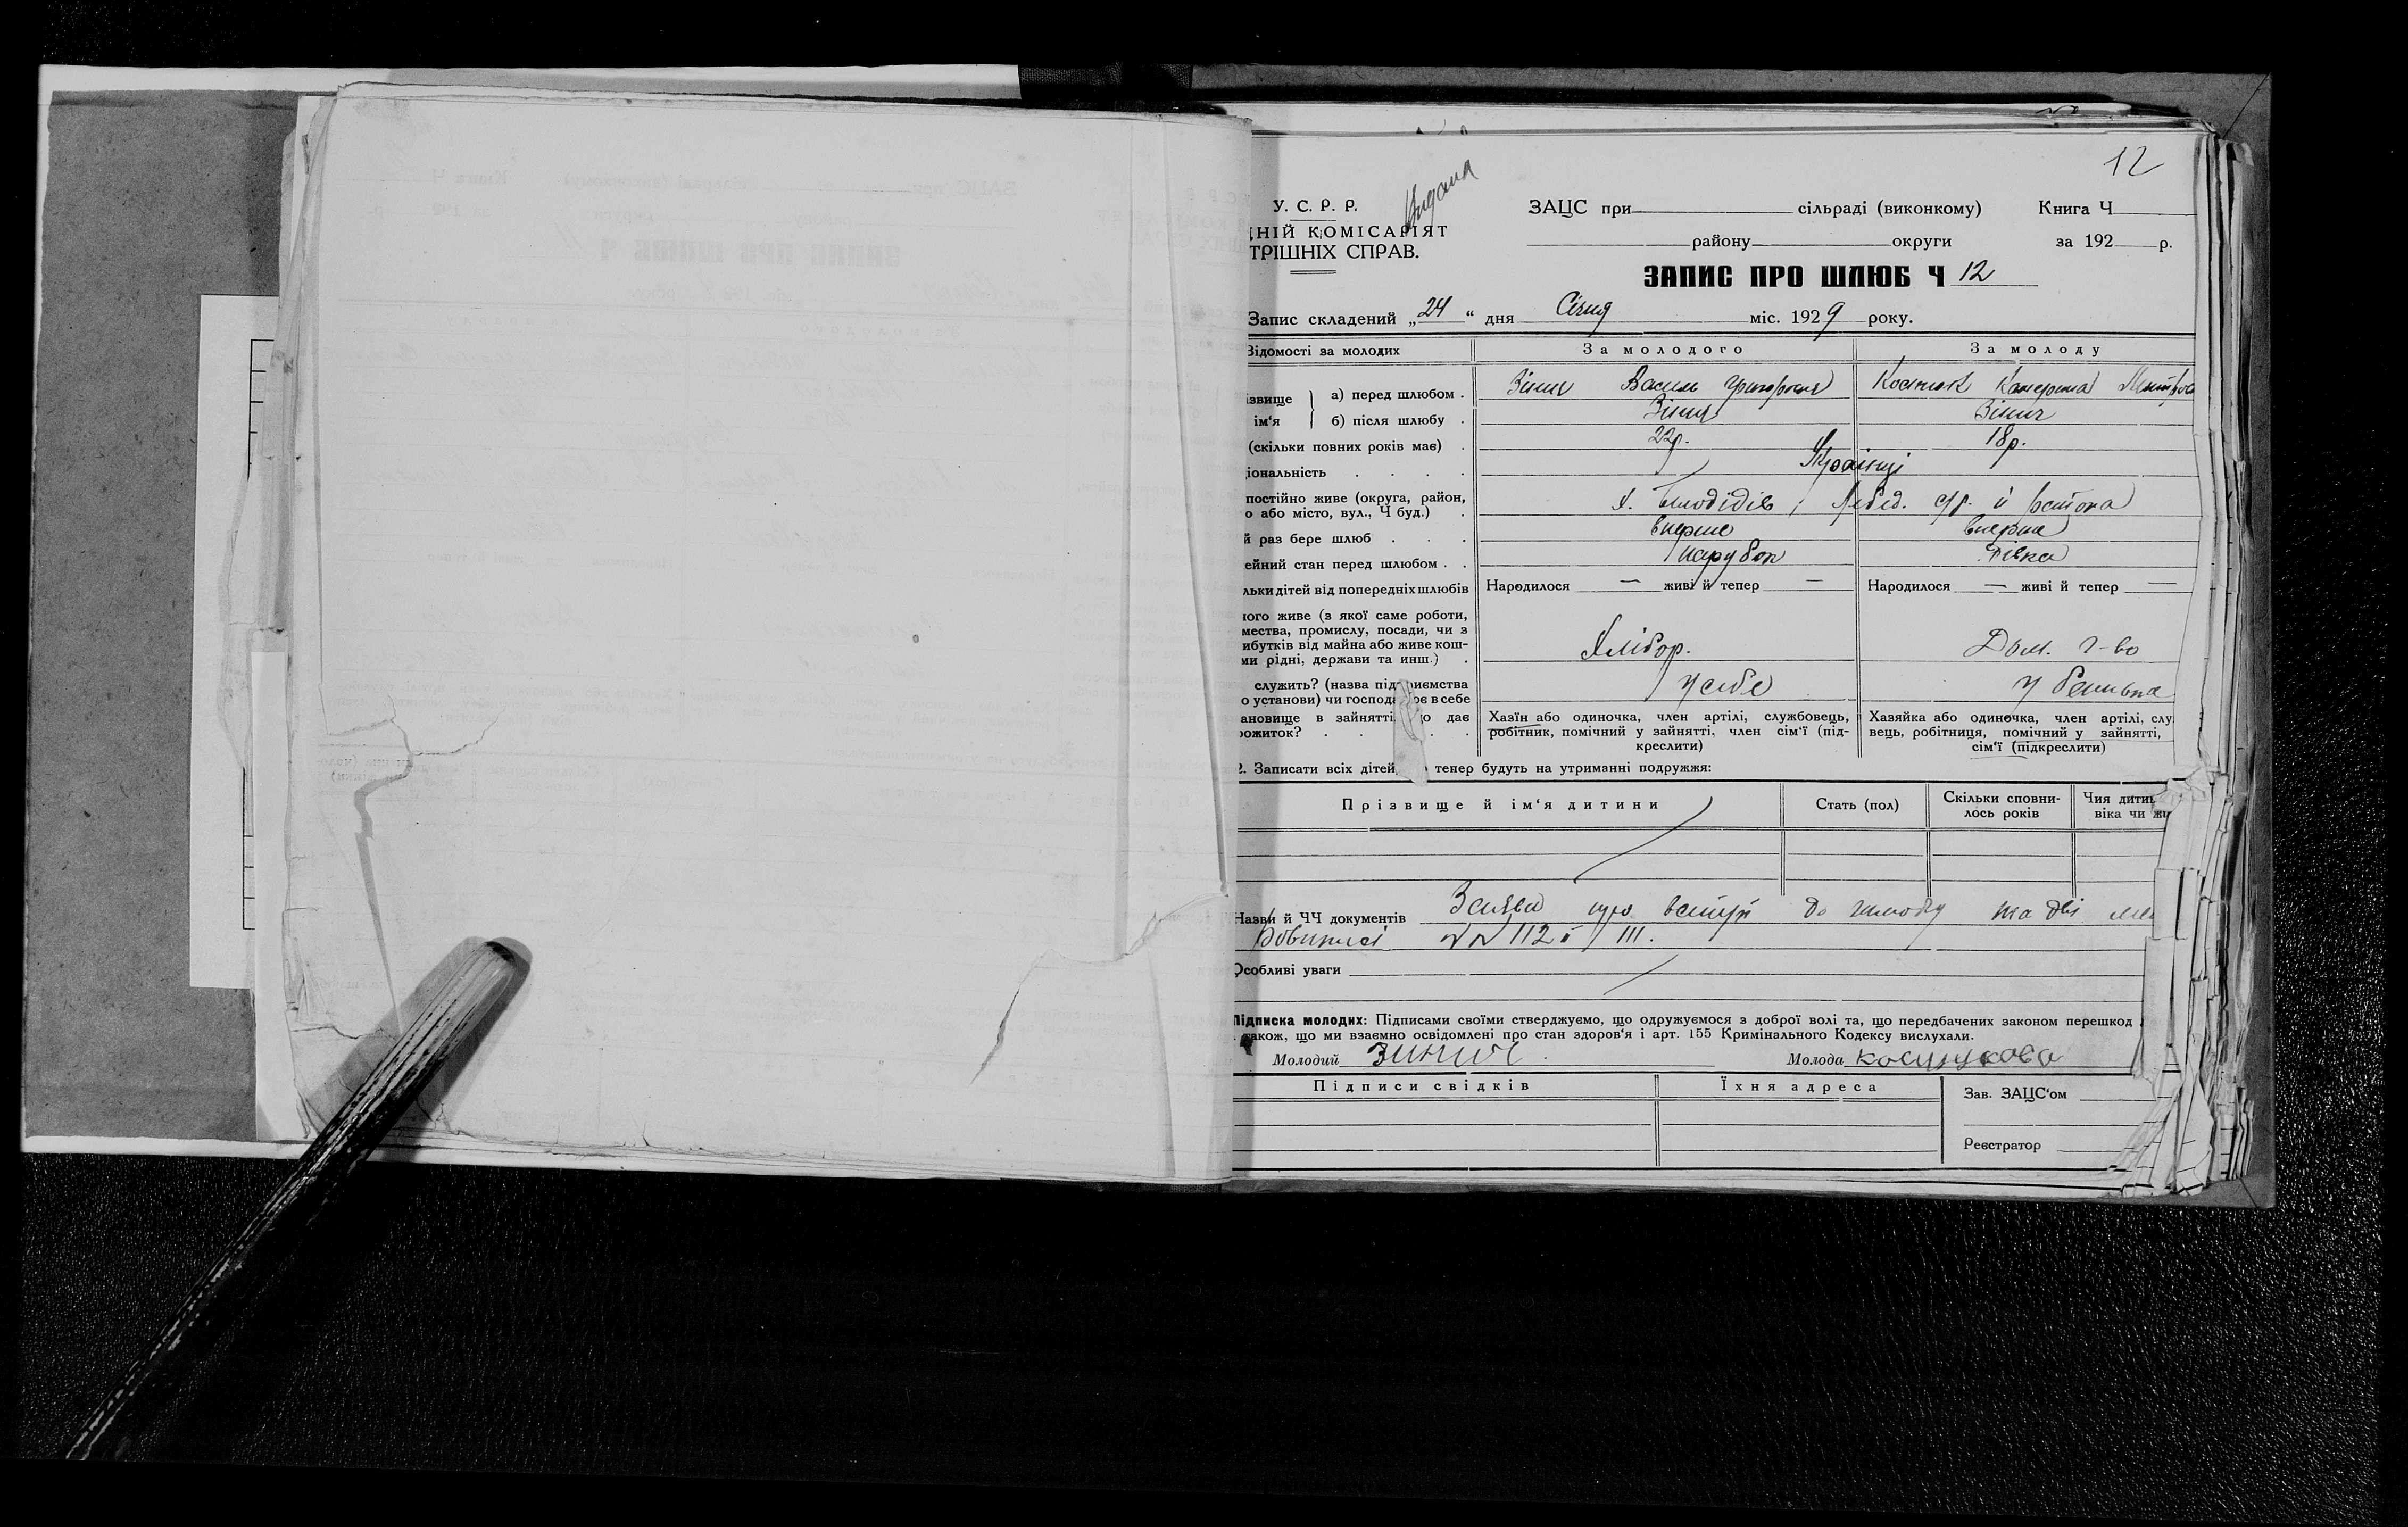 12
У. С. Р. Р.
Видана
ЗАЦС при сільраді (виконкому) Книга Ч
ДНІЙ КОМІСАРІЯТ
району округи за 192 р.
ТРІШНІХ СПРАВ.
ЗАПИС ПРО ШЛЮБ Ч 12
Запис складений „24“ дня Січня міс. 1929 року.
Відомості за молодих За молодого За молоду
ізвище а) перед шлюбом . Зінич Василь Григоров Костюк Катерина Митров
ім'я б) після шлюбу . Зінич Зінич
(скільки повних років має) . 22р. 18р.
іональність . . . . Українці
постійно живе (округа, район,
о або місто, вул., Ч буд.) . х. Лебед. с/р. й району
й раз бере шлюб . . . вперше вперше
ейний стан перед шлюбом . . парубок дівка
льки дітей від попередніх шлюбів Народилося — живі й тепер — Народилося — живі й тепер —
ного живе (з якої саме роботи,
мества, промислу, посади, чи з
ибутків від майна або живе кош-
ми рідні, держави та инш.) . Хлібор. Дом. г-во
служить? (назва підприємства
о установи) чи господарює в себе У себе У батька
ановище в зайнятті, що дає
рожиток? . . . . .
Хазїн або одиночка, член артілі, службовець,
робітник, помічний у зайнятті, член сім'ї (під-
креслити)
Хазяйка або одиночка, член артілі, слу
вець, робітниця, помічний у зайнятті,
сім'ї (підкреслити)
2. Записати всіх дітей, тепер будуть на утриманні подружжя:
Прізвище й ім'я дитини Стать (пол) Скільки сповни-
лось років Чия дити
віка чи жі
Назви й ЧЧ документів Заява про вступ до шлюбу та дві
112 і 111.
Особливі уваги
Підписка молодих: Підписами своїми стверджуємо, що одружуємося з доброї волі та, що передбачених законом перешкод
також, що ми взаємно освідомлені про стан здоров'я і арт. 155 Кримінального Кодексу вислухали.
Молодий Зинич Молода Костюкова
Підписи свідків Їхня адреса
Зав. ЗАЦС'ом
Реєстратор